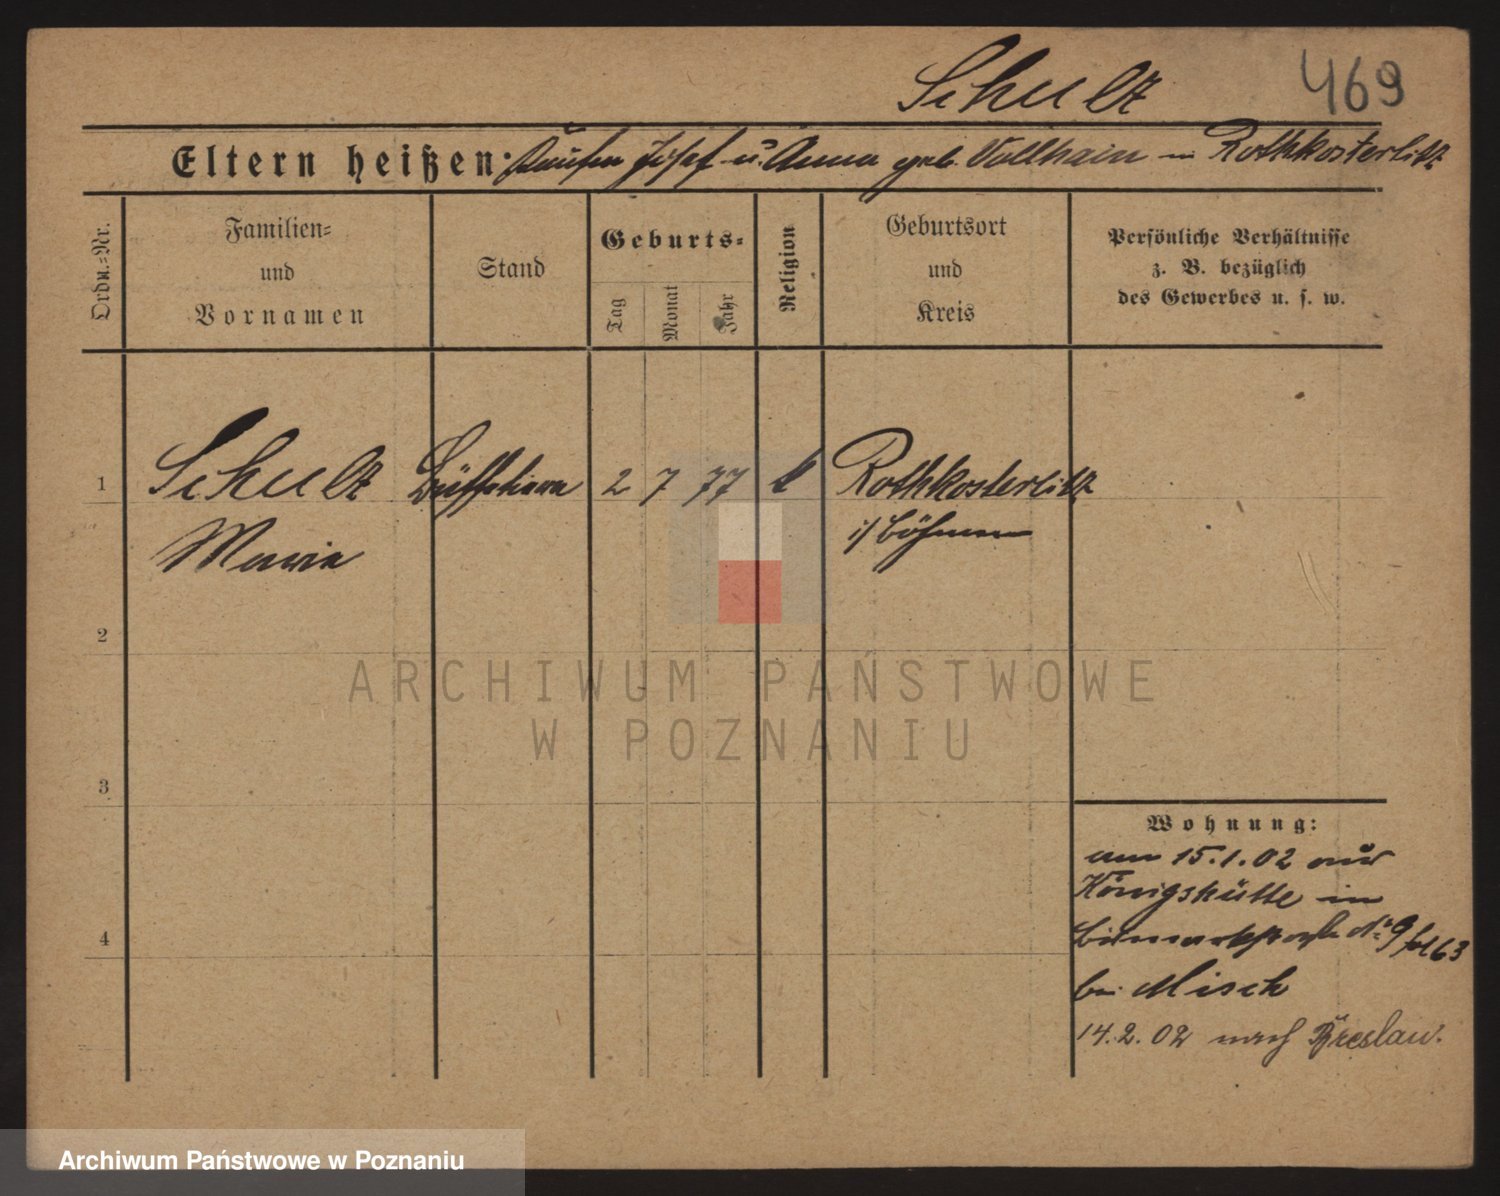 Schulz 469
Eltern heißen: Josef u. Anna geb. Vollhain in Rothkosterlitz
Ordn.-Nr. Familien- und Vornamen Stand Geburts- Tag Monat Jahr Religion Geburtsort und Kreis Persönliche Verhältnisse z. B. bezüglich des Gewerbes u. s. w.
1 Schulz Büffetiere 2 7 77 k Rothkosterlitz
Maria i/ Böhmen
2
ARCHIWUM PAŃSTWOWE
W POZNANIU
3
Wohnung:
am 15.1.02 aus
Königshütte in
4 Bismarkstraße No 9 fol 63
bei Misch
14.2.02 nach Breslau.
Archiwum Państwowe w Poznaniu